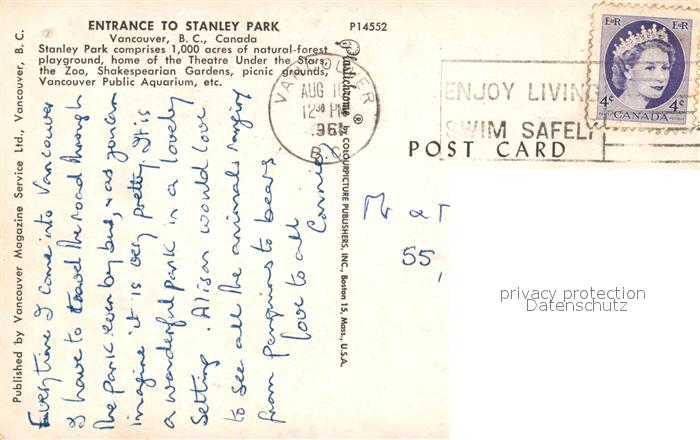 ENTRANCE TO STANLEY PARK
Vancouver, B. C., Canada
Stanley Park comprises 1,000 acres of natural-forest
playground, home of the Theatre Under the Stars,
the Zoo, Shakespearian Gardens, picnic grounds,
Vancouver Public Aquarium, etc.
P14552
Published by Vancouver Magazine Service Ltd., Vancouver, B. C.
Everytime I come into Vancouver
I have to travel the road through
the Park even by bus, & as you can
imagine it is very pretty. It is
a wonderful park in a lovely
Setting. Alison would love
to see all the animals ranging
from penguins to bears
love to all
Connie.
Plastichrome ® by COLOURPICTURE PUBLISHERS, INC., Boston 15, Mass., U.S.A.
VANCOUVER
AUG 10
12 30 PM
B. C.
ENJOY LIVING
SWIM SAFELY
EIIR EIIR
4c 4c
CANADA
POST CARD
55,
privacy protection
Datenschutz